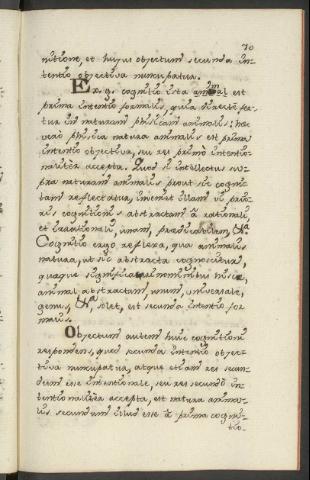 70
nitione, et hujus objectum secunda in-
tentio objectiva nuncupatur.
Ex. g. cognitio ista animal est
prima intentio formalis, quia directè fer-
tur in naturam physicam animalis: hæc
verò physica natura animalis est prima
intentio objectiva, seu res primò intentio-
naliter accepta. Quod si intellectus su-
pra naturam animalis prout sic cogni-
tam reflectatur, inveniet illam vi prio-
ris cognitionis abstractam à rationali,
et irrationali, unam, prædicabilem, &a.
Cognitio ergo reflexa, qua animalis
natura, ut sic abstracta cognoscitur,
quaque significari nominibus
animal abstractum, unum, universale,
genus, &a, solet, est secunda intentio for-
malis.
Objectum autem huic cognitioni
respondens, quod secunda intentio objec-
tiva nuncupatur, atque etiam res secun-
dum esse intentionale, seu res secundò in-
tentionaliter accepta, est natura anima-
lis secundum illud esse prima cogni-
tio-